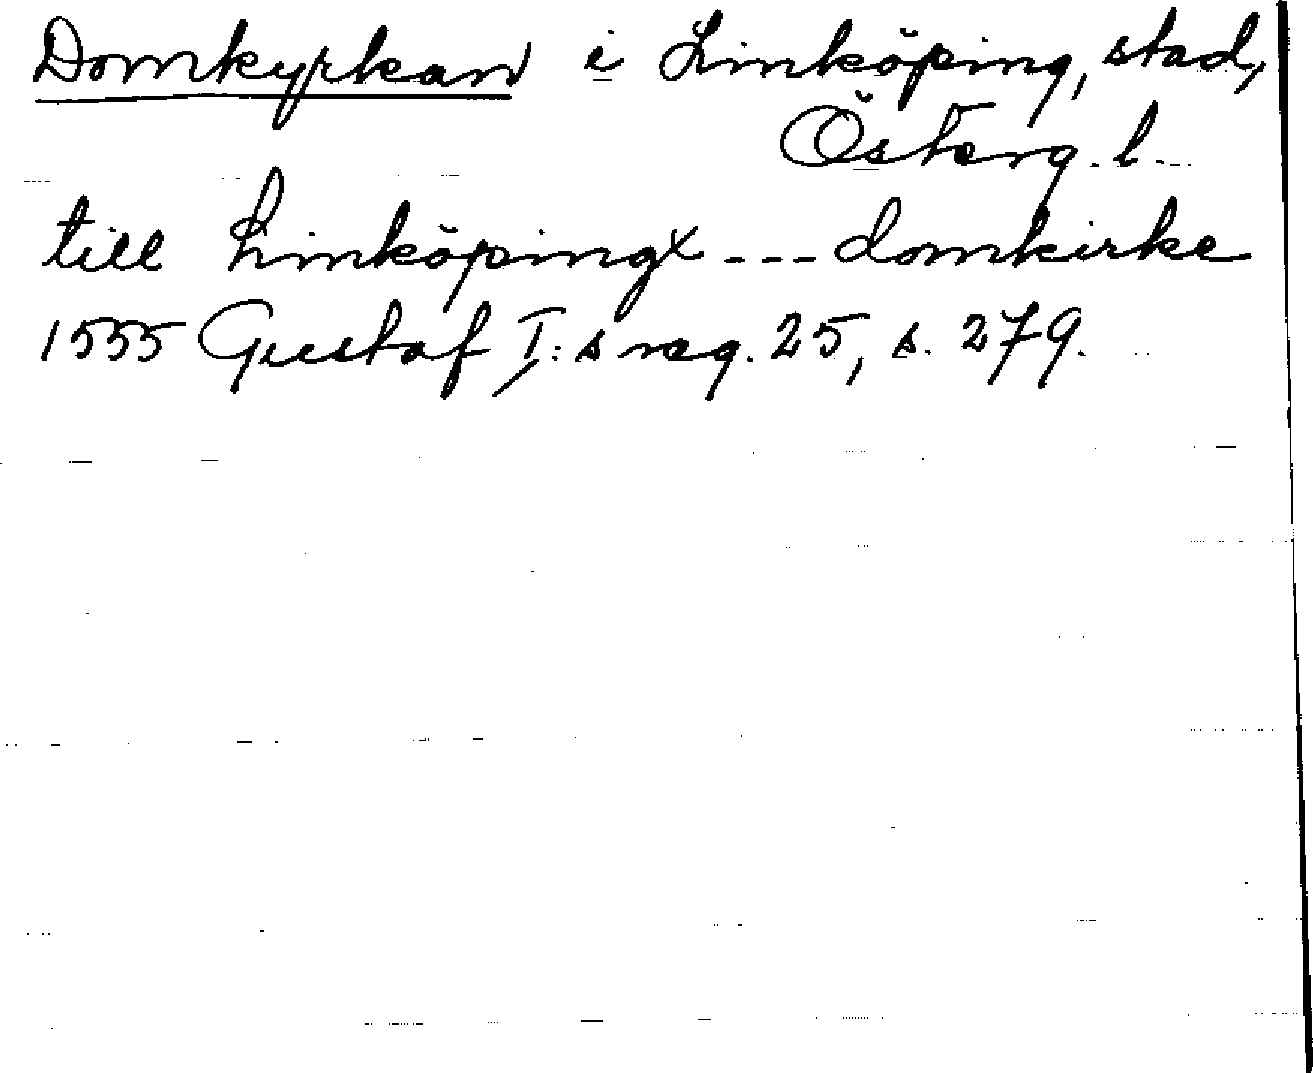 Domkyrkan i Linköping, stad,
Österg. l.
till Linköpingx --- domkirke
1555 Gustaf I:s reg. 25, s. 279.